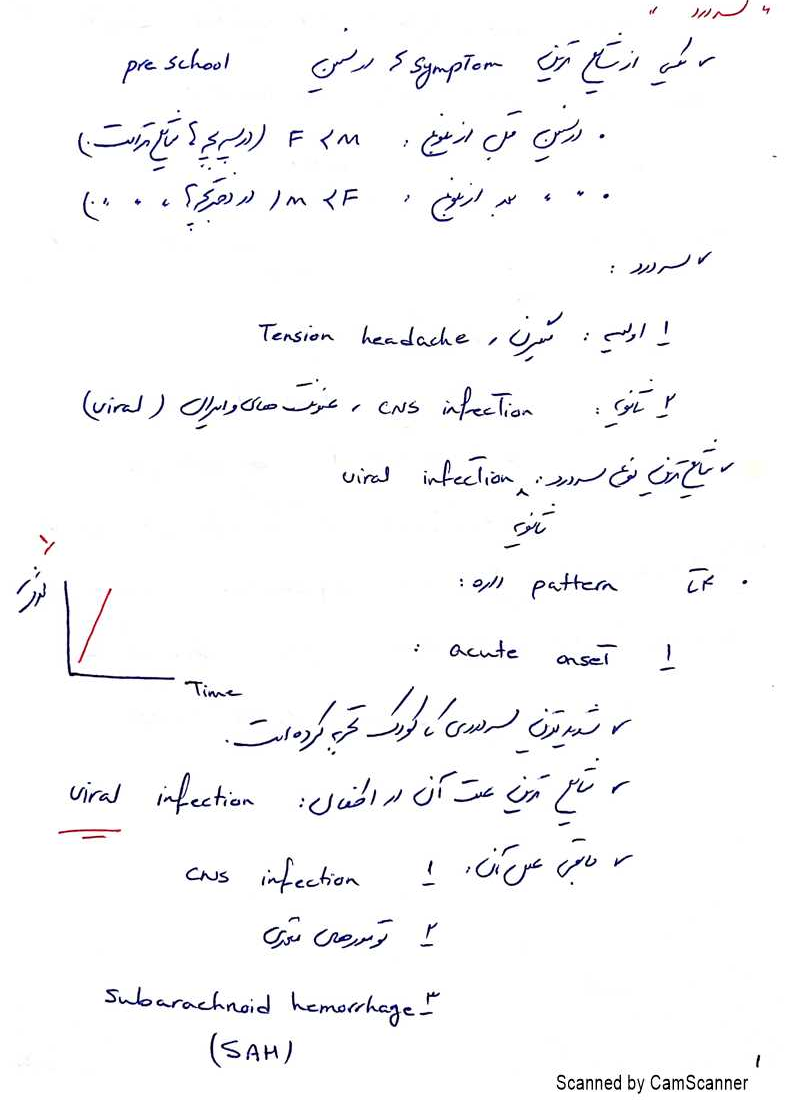 " سردرد "
✓ یکی از شایع ترین symptom ها در سنین pre school
• در سنین قبل از بلوغ : F < M (در پسربچه ها شایع تر است.)
• " " بعد از بلوغ : M < F (در دختربچه ها " " ".)
✓ سردرد :
۱ اولیه : میگرن ، Tension headache
۲ ثانویه : CNS infection ، عفونت های وایرال (viral)
✓ شایع ترین نوع سردرد ثانویه : viral infection
• ۴ تا pattern داره :
۱ acute onset :
شدت
Time
✓ شدیدترین سردردی که کودک تجربه کرده است.
✓ شایع ترین علت آن در اطفال : viral infection
✓ مابقی علل آن : ۱ CNS infection
۲ تومورهای مغزی
۳ Subarachnoid hemorrhage
(SAH)
۱
Scanned by CamScanner